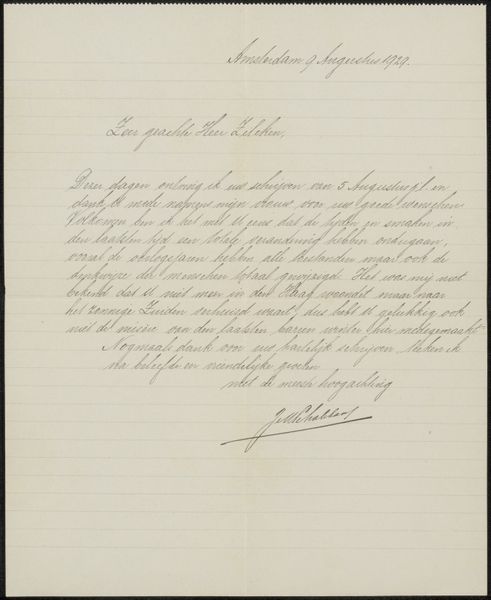 Amsterdam 9 Augustus 1929.
Zeer geachte Heer Zilcken,
Dezer dagen ontving ik uw schrijven van 5 Augustus jl. en
dank U mede namens mijn vrouw voor uw goede wenschen
Volkomen ben ik het met U eens dat de tijden en smaken in
den laatsten tijd een totale verandering hebben ondergaan,
vooral de oorlogsjaren hebben alle toestanden maar ook de
denkwijze der menschen totaal gewijzigd. Het was mij niet
bekend dat U niet meer in den Haag woondet maar naar
het zonnige Zuiden verhuisd waart, dus hebt U gelukkig ook
niet de misère van den laatsten barren winter hier medegemaakt.
Nogmaals dank voor uw hartelijk schrijven, teeken ik
na beleefde en vriendelijke groeten
met de meeste hoogachting